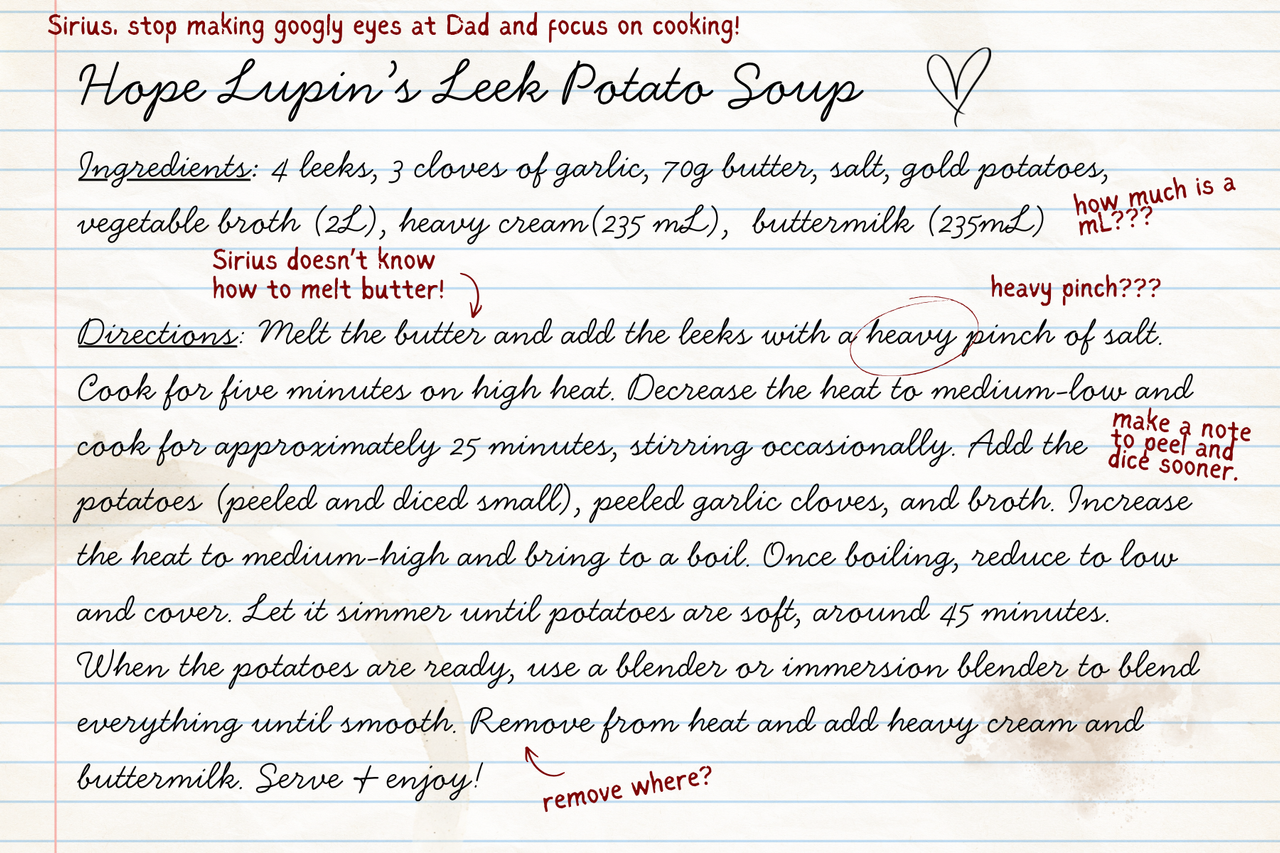 Sirius. stop making googly eyes at Dad and focus on cooking!
Hope Lupin's Leek Potato Soup
Ingredients: 4 leeks, 3 cloves of garlic, 70g butter, salt, gold potatoes,
vegetable broth (2L), heavy cream(235 mL), buttermilk (235mL)
how much is a
mL???
Sirius doesn't know
how to melt butter!
heavy pinch???
Directions: Melt the butter and add the leeks with a heavy pinch of salt.
Cook for five minutes on high heat. Decrease the heat to medium-low and
cook for approximately 25 minutes, stirring occasionally. Add the
make a note
to peel and
dice sooner.
potatoes (peeled and diced small), peeled garlic cloves, and broth. Increase
the heat to medium-high and bring to a boil. Once boiling, reduce to low
and cover. Let it simmer until potatoes are soft, around 45 minutes.
When the potatoes are ready, use a blender or immersion blender to blend
everything until smooth. Remove from heat and add heavy cream and
buttermilk. Serve + enjoy!
remove where?